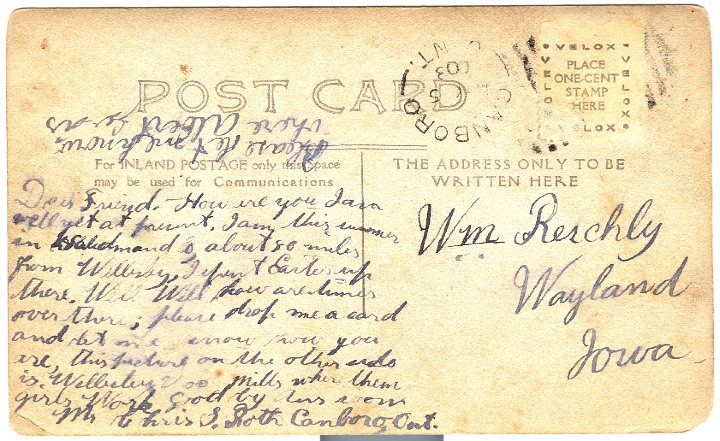 POST CARD
CANBORO
ONT.
VELOX
PLACE
ONE-CENT
STAMP
HERE
VELOX
VELOX
VELOX
Please let me know
where Albert
For INLAND POSTAGE only this Space
may be used for Communications
THE ADDRESS ONLY TO BE
WRITTEN HERE
Dear Friend. How are you I am
well yet at present. I am this summer
in about 80 miles
from Wellesley. I spent Easter up
there. Well Will how are times
over there; please drop me a card
and let me know how you
are, this picture on the other side
is Wellesley Mills where them
girls Work Good by
Mr Chris S. Roth Canboro, Ont.
Wm Reschly
Wayland
Iowa